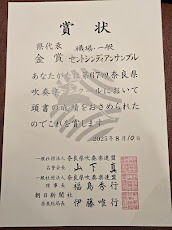 賞状
県代表 職場・一般
金賞 セントシンディアンサンブル
あなたがたは第67回奈良県
吹奏楽コンクールにおいて
頭書の成績をおさめられた
のでこれを賞します
2025年8月10日
一般社団法人 奈良県吹奏楽連盟
名誉会長 山下真
一般社団法人 奈良県吹奏楽連盟
理事長 福島秀行
朝日新聞社
奈良総局長 伊藤唯行